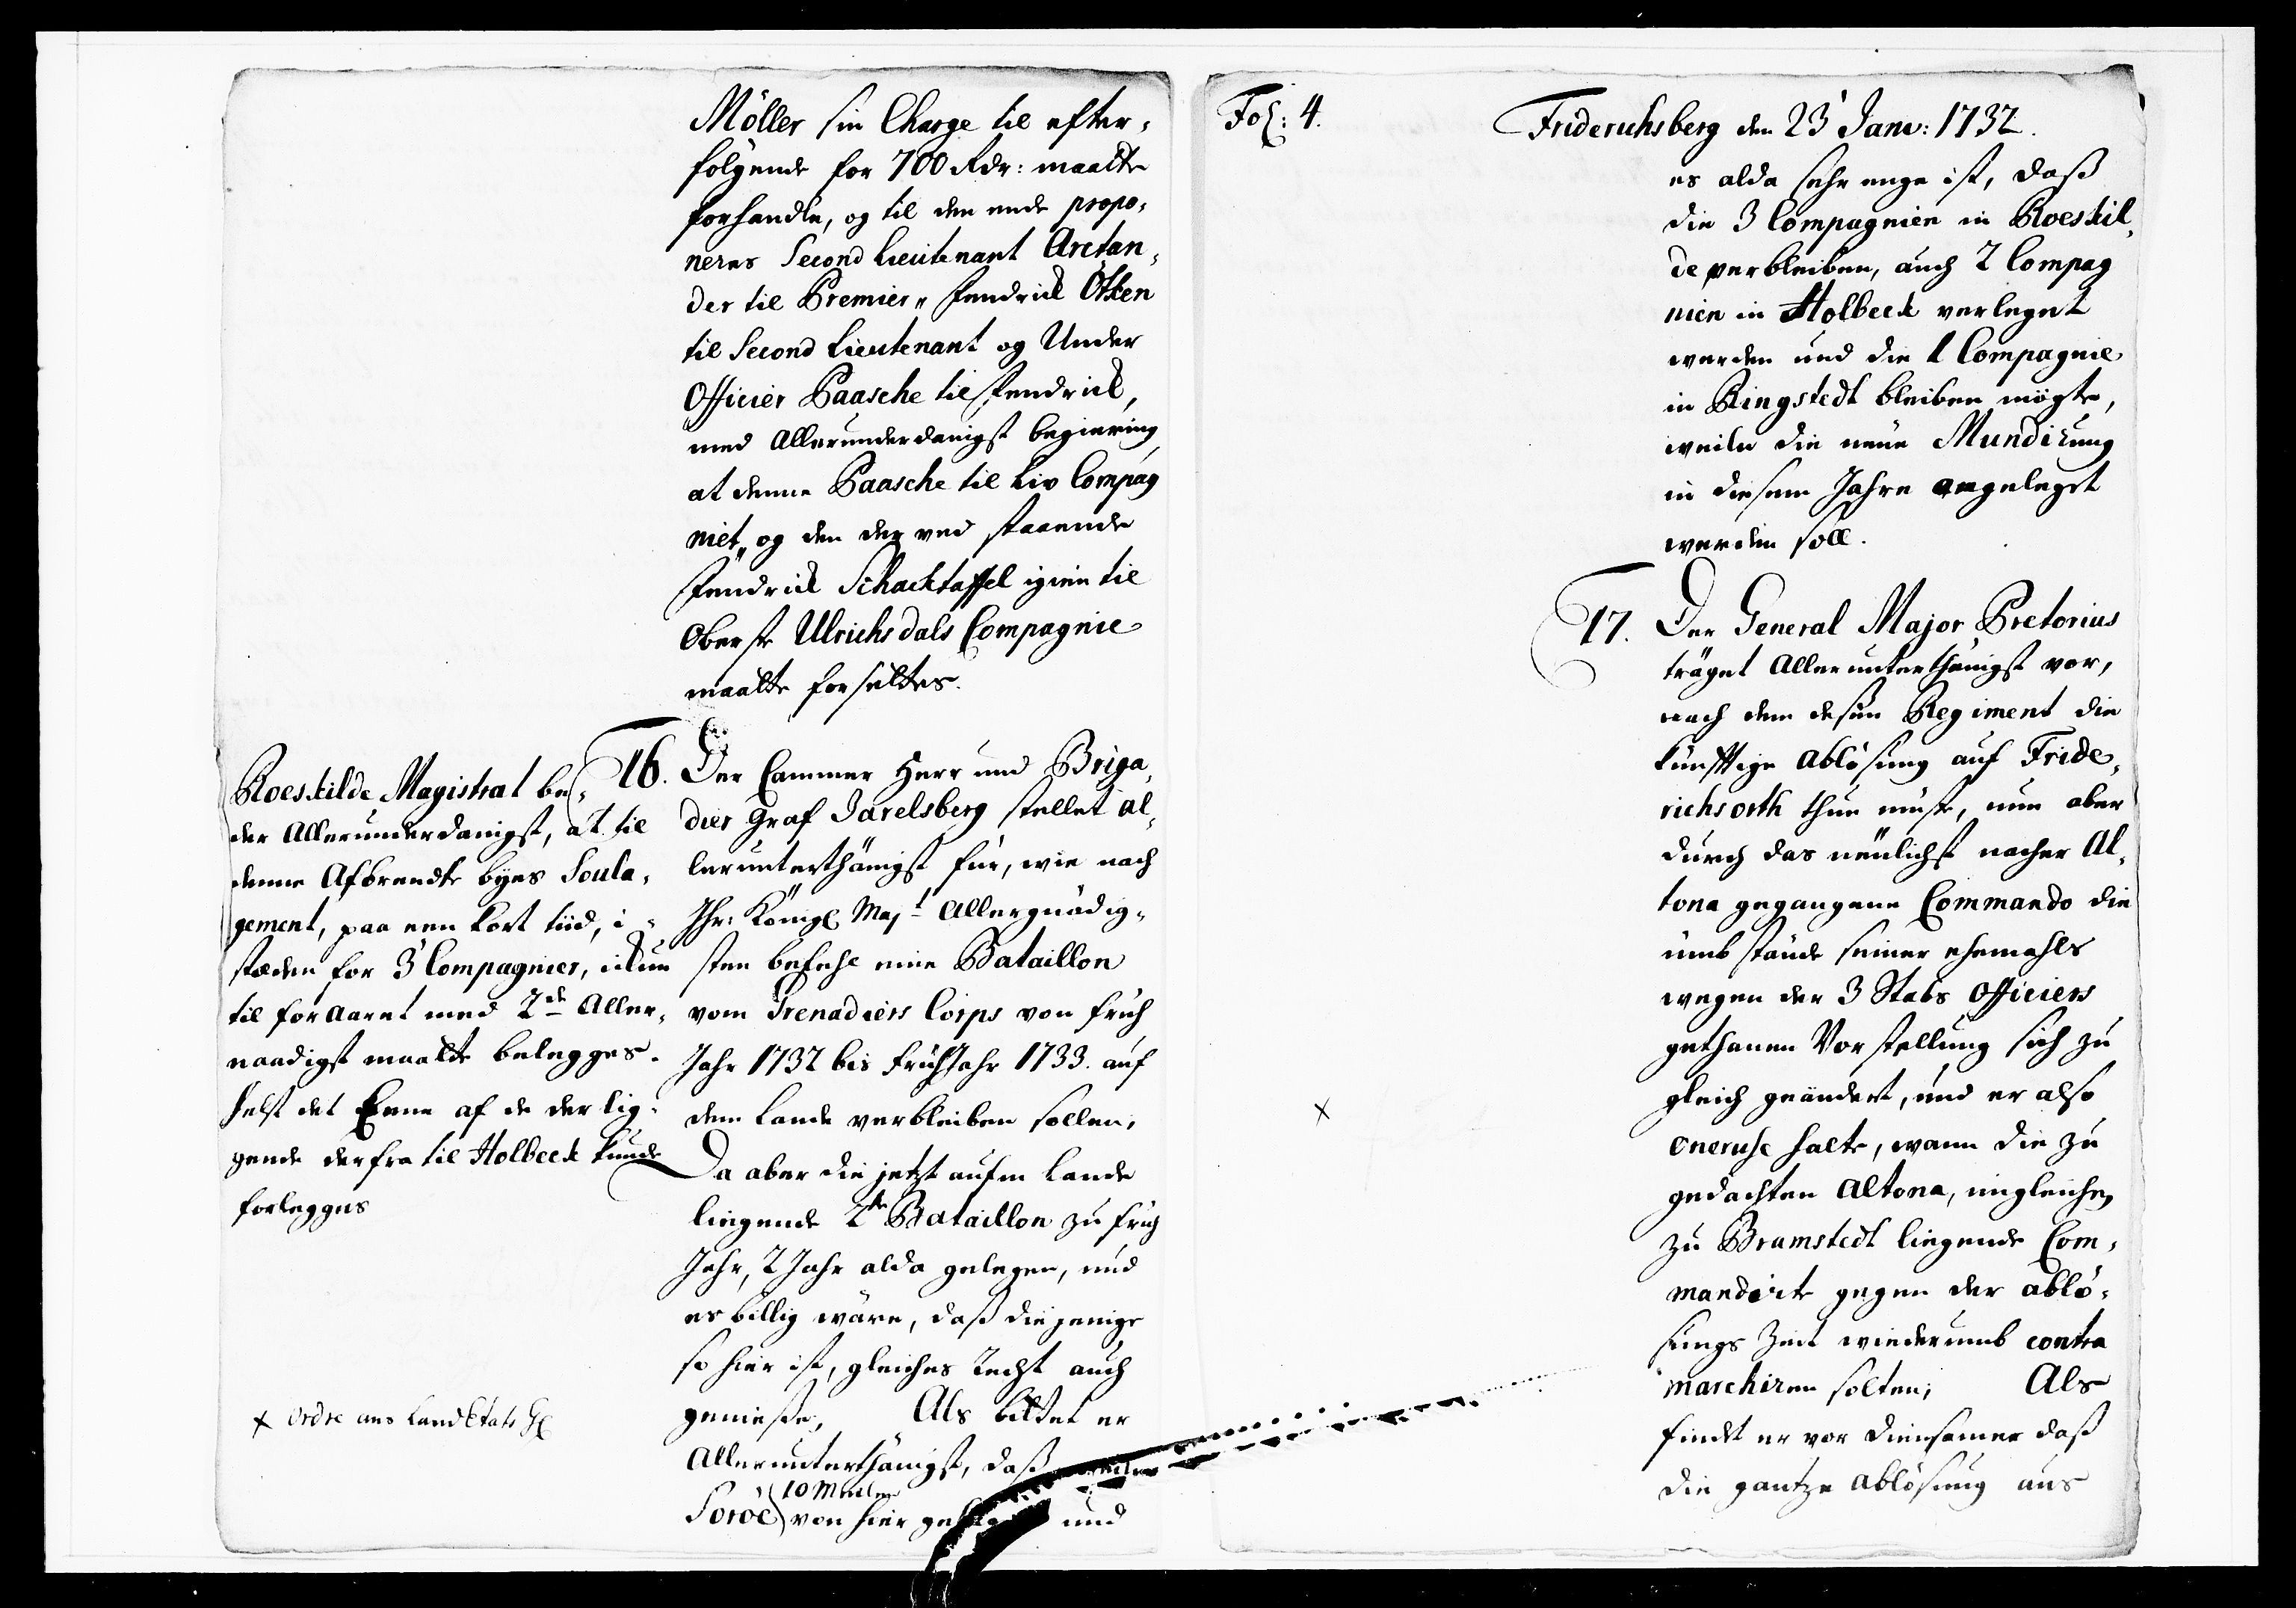 Möller sin Charge til efter-
følgende for 700 Rdr: maatte
forhandle, og til den ende propo-
neres Second Lieutenant Arctan-
der til Premier, Fendrick Otken
til Second Lieutenant og Under
Officier Baasche til Fendrick,
med Allerunderdanigst begiering
at denne Baasche til Liv Compag
niet, og den der ved staaende
Fendrick Schacktaffel igien til
Oberste Ulrichsdals Compagnie
maatte forsættes.
16. Der Cammer Herr und Briga-
dier Graf Jarelsberg stellet al-
lerunterthänigst für, wie nach
Ihr: Königl Majt Allergnädig-
sten befehl eine Bataillon
vom Grenadiers Corps von früh
Jahr 1732 bis FrühJahr 1733. auf
dem Lande verbleiben sollen,
Da aber die jetzt aufm Lande
liegende 2te Bataillon zu früh
Jahr, 2 Jahr alda gelegen, und
es billig wäre, daß diejenige
so hier ist, gleiches Recht auch
genieße, Als bittet er
Allerunterthänigst, daß weilen
Soröe 10 Meilen
von hier gelegen und
Roeskilde Magistrat be-
der Allerunderdanigst, at til
denne Afbrendte byes Soula-
gement, paa een kort tiid, i-
stæden for 3 Compagnier, ickun
til foraaret med 2de Aller-
naadigst maatte belegges.
helst det Eene af de der lig-
gende derfra til Holbeck kunde
forlegges
x Ordre ans LandEtats Gl
Fol: 4.
Friderichsberg den 23 Janv: 1732.
es alda sehr enge ist, daß
die 3 Compagnien in Roeskil-
de verbleiben, auch 2 Compag
nien in Holbeck verleget
werden und die 1 Compagnie
in Ringstedt bleiben mögte,
weilen die neue Mundirung
in diesem Jahre angeleget
werden soll.
17. Der General Major Pretorius
träget Allerunterthänigst vor,
nach dem deßen Regiment die
künfftige Ablösung auf Fride-
richsorth thun müste, nun aber
durch das neulichst nacher Al-
tona gegangene Commando die
umbstände seiner ehemahls
wegen der 3 Stabs Officiers
gethanen Vorstellung sich zu
gleich geändert, und er also
x
oneruse halte, wann die zu
gedachten Altona, imgleichen
zu Bramstedt liegende Com-
mandirte gegen der ablö-
sungs Zeit wiederumb contra
marchiren solten; Als
findt er vor diensamer daß
die gantze Ablösung aus